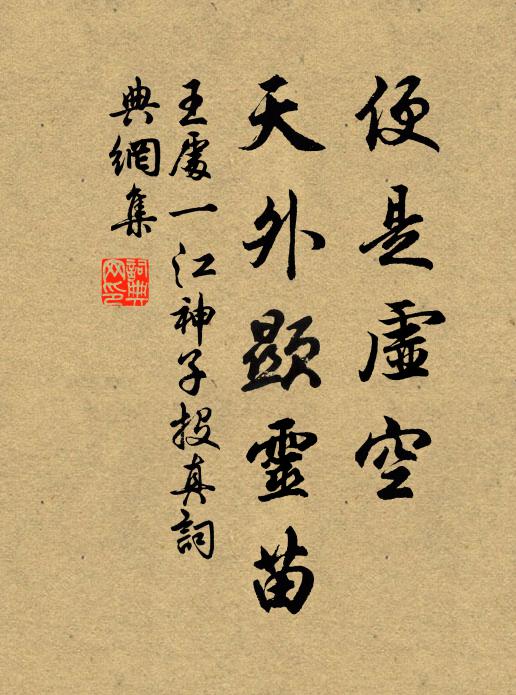 便是虛空
天外顯靈苗
王處一江神子投真詞
典網集
詞典
网印